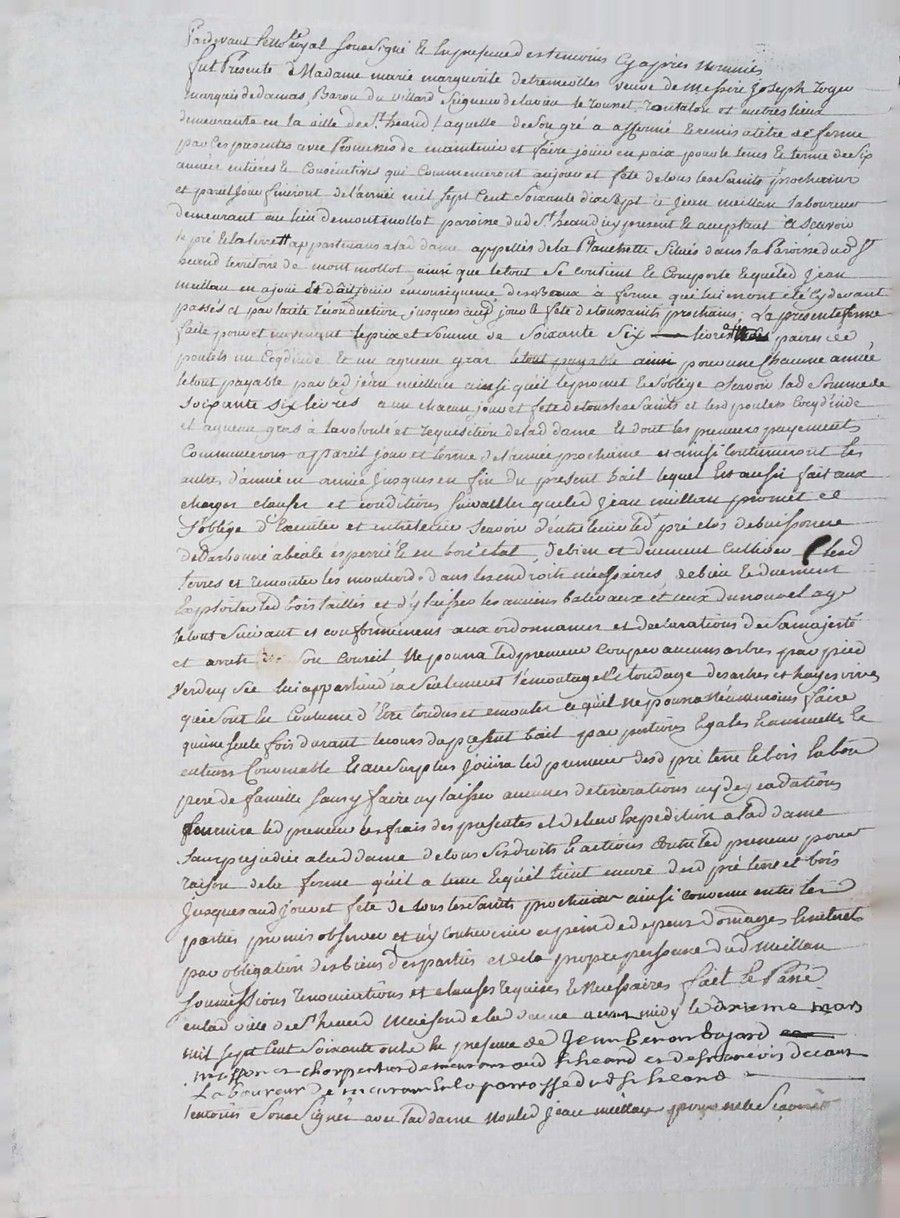 Pardevant le no.re royal soussigné et en presence des temoins cy apres nommés
fut Presente Madame marie marguerite de tremeolles veuve de messire joseph roger
marquis de damas, Baron du villard Seigneur de lavieu le rousset, rontalon et autres lieux
demeurante en la ville de St heand, laquelle de son gré a affermé et remis a titre de ferme
par ces presentes avec Promesses de maintenir et faire jouir en paix pour le tems et terme de Six
années entières et Consécutives qui Commenceront au jour et fête de tous les Saints prochains
et pareil jour finiront de l'année mil sept Cent Soixante dix sept à jean meillan laboureur
demeurant au lieu de montmollot paroisse dud St heand icy present et acceptant a Scavoir
le pré et la terre appartenans a lad dame appellés de la Planchette Situés dans la Paroisse dud St
heand territoire de montmollot, ainsi que le tout Se contient et Comporte et que led jean
meillan en a joui et dû jouir en conséquence des Beaux à ferme qui lui en ont été cy devant
passés et par taite réconduction, jusques aud jour le fête de toussaints prochains; La presente ferme
faite pour et moyenant le prix et Somme de Soixante Six livres paires de
poulets un Coq d'inde et un agneau gras pour une Chacune année
le tout payable par led jean meillan ainsi qu'il le promet et S'oblige Scavoir lad Somme de
Soixante six livres a un chacun jour et fête de tous les Saints et lesd poulets Coq d'inde
et agneau gras à la volonté et requisition de lad dame Et dont les premiers payements
Commenceront a pareil jour et terme de l'année prochaine et ainsi Continueront les
autres d'année en année jusques en fin du present bail lequel Est aussi fait aux
charges clauses et conditions Suivantes que led jean meillan promet et
S'oblige d'Executer et entretenir Scavoir d'entretenir led pré clos de buissons
en bon état, de bien et duement Cultiver lesd
terres et remonter les dans les endroits nécessaires, de bien et duement
Exploiter led bois taillis et d'y laisser les anciens balivaux et ceux du nouvel age
le tout Suivant et conformément aux ordonnances et déclarations de Sa majesté
et arrets de Son Conseil Ne pourra led preneur Couper aucuns arbres par pied
verd ny Sec lui appartiendra Seulement l'émontage et tondage des arbres et hayes vives
qui Sont en Coutume d'Etre tondus et emonder ce qu'il ne pourra néanmoins faire
qu'une Seule fois durant le cours du present bail par portions Egales et annuelles et
en tems Convenable Et au Surplus jouira led preneur desd pré terre et bois en bon
pere de famille Sans y faire ny laisser aucunes deteriorations ny degradations
fournira led preneur les frais des presentes et de leur Expedition a lad dame
Sans prejudice a lad dame de tous Ses droits et actions Contre led preneur pour
raison de la ferme qu'il a tenu et qu'il tient encore desd pré terre et bois
jusques aud jour et fête de tous les Saints prochains ainsi Convenu entre les
parties promis observer et n'y Contrevenir a peine de depens domages Interets
par obligation des biens desd parties et de la propre personne dud Meillan
Soumissions renonciations et clauses requises et Necessaires fait et Passé
en lad ville de St heand Maison de lad dame avant midy le dixieme mars
mil sept Cent Soixante onze En presence de Jean benoit bajard
masson et charpentier demeurant aud St heand et de francois decaux
Laboureur demeurant en la parroisse dud St heand
temoins Soussignés avec lad dame Non led jean meillan pour ne le Scavoir